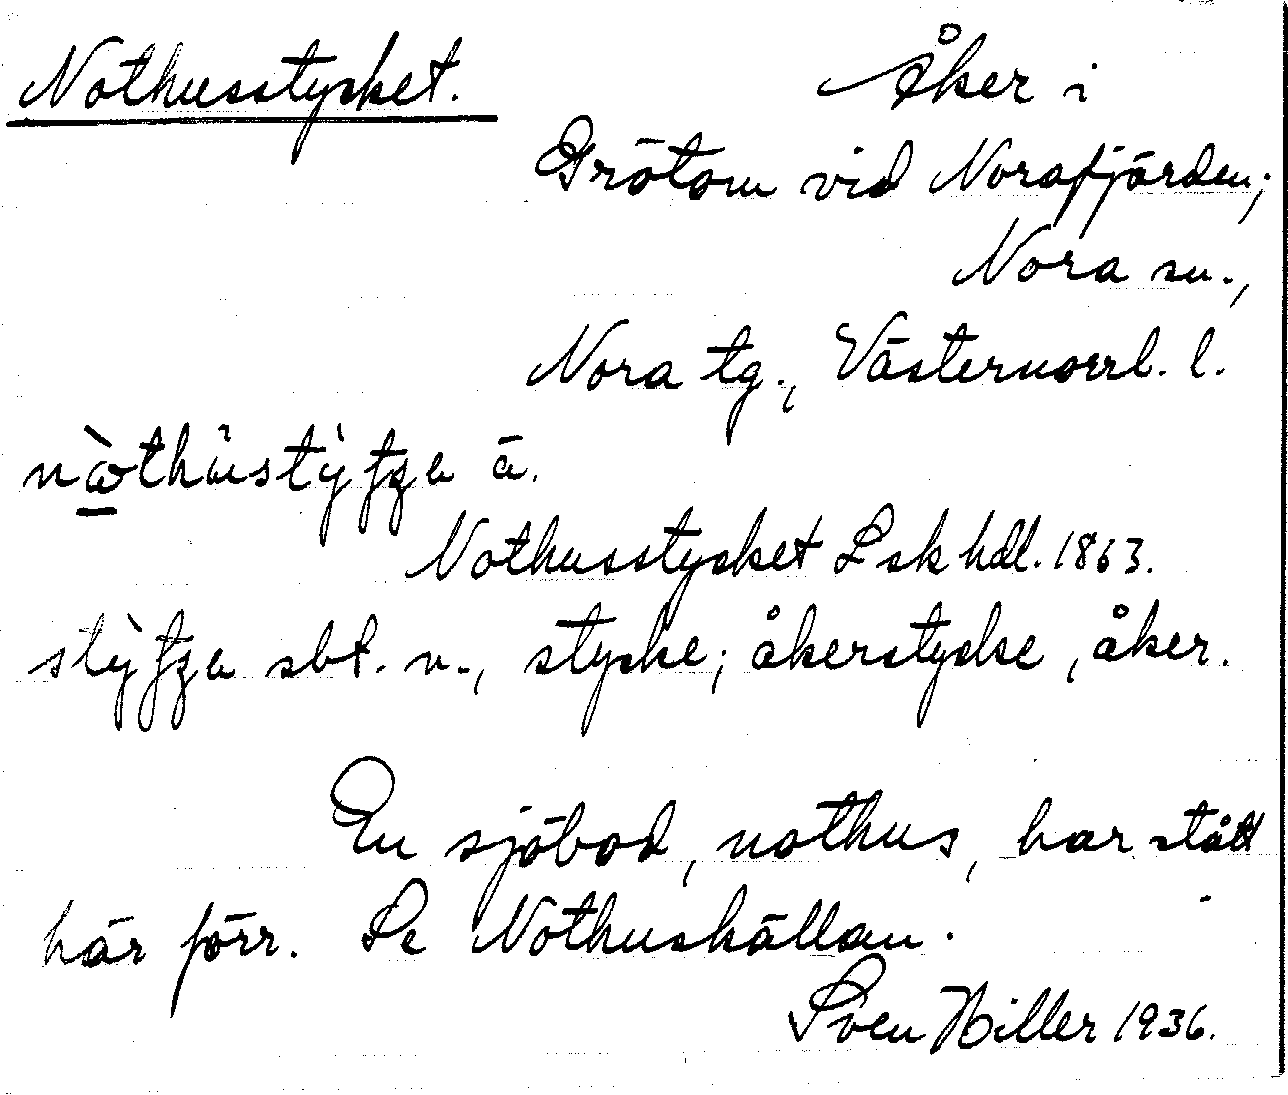 Nothusstycket. Åker i
Grötom vid Norafjärden;
Nora sn.,
Nora tg., Västernorrl. l.
ä.
Nothusstycket Lsk hdl. 1863.
sbt. n., stycke; åkerstycke, åker.
En sjöbod, nothus, har stått
här förr. Se Nothuskällan.
Sven Hiller 1936.